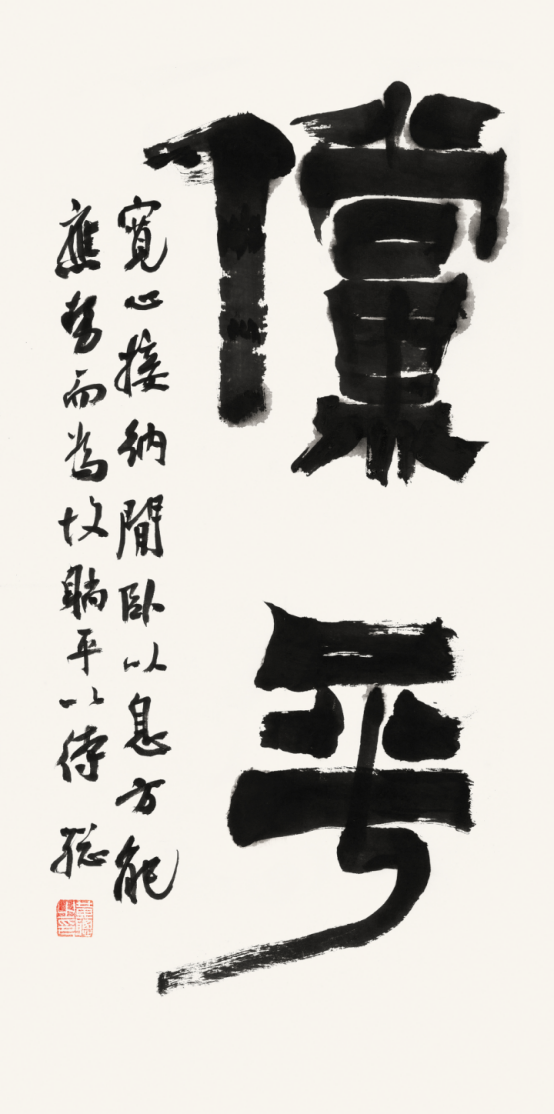 儻平
寬心接納閒臥以息方能
應勢而為故躺平以待
聪